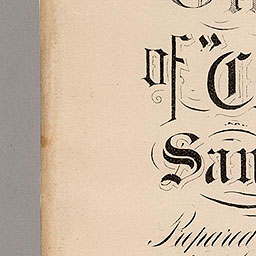 of "C
San
Prepared